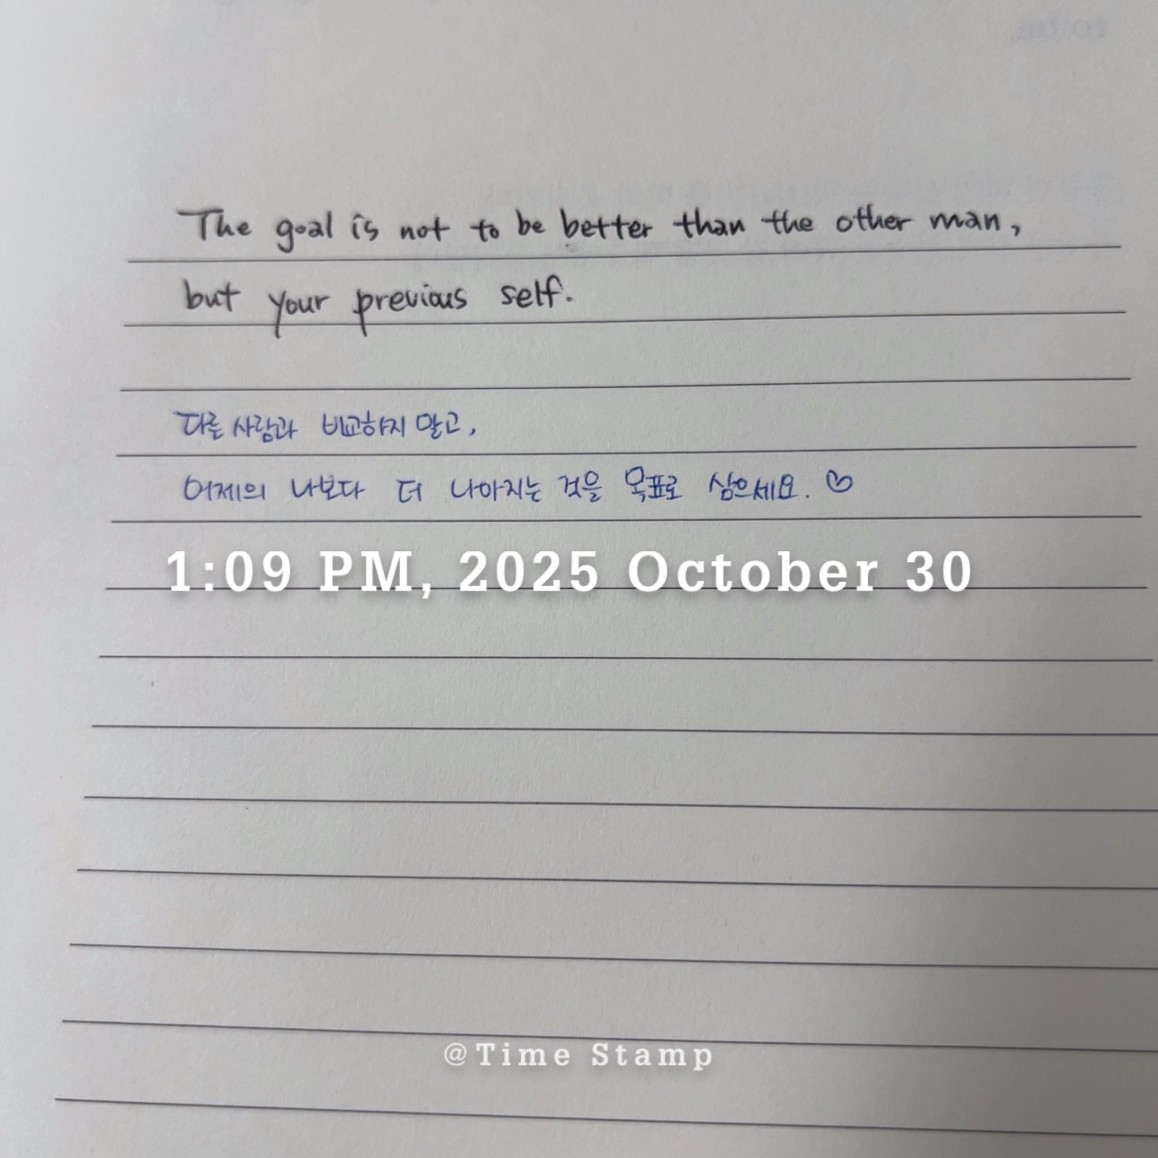 The goal is not to be better than the other man,
but your previous self.
다른 사람과 비교하지 말고,
어제의 나보다 더 나아지는 것을 목표로 삼으세요. ♡
1:09 PM, 2025 October 30
@Time Stamp